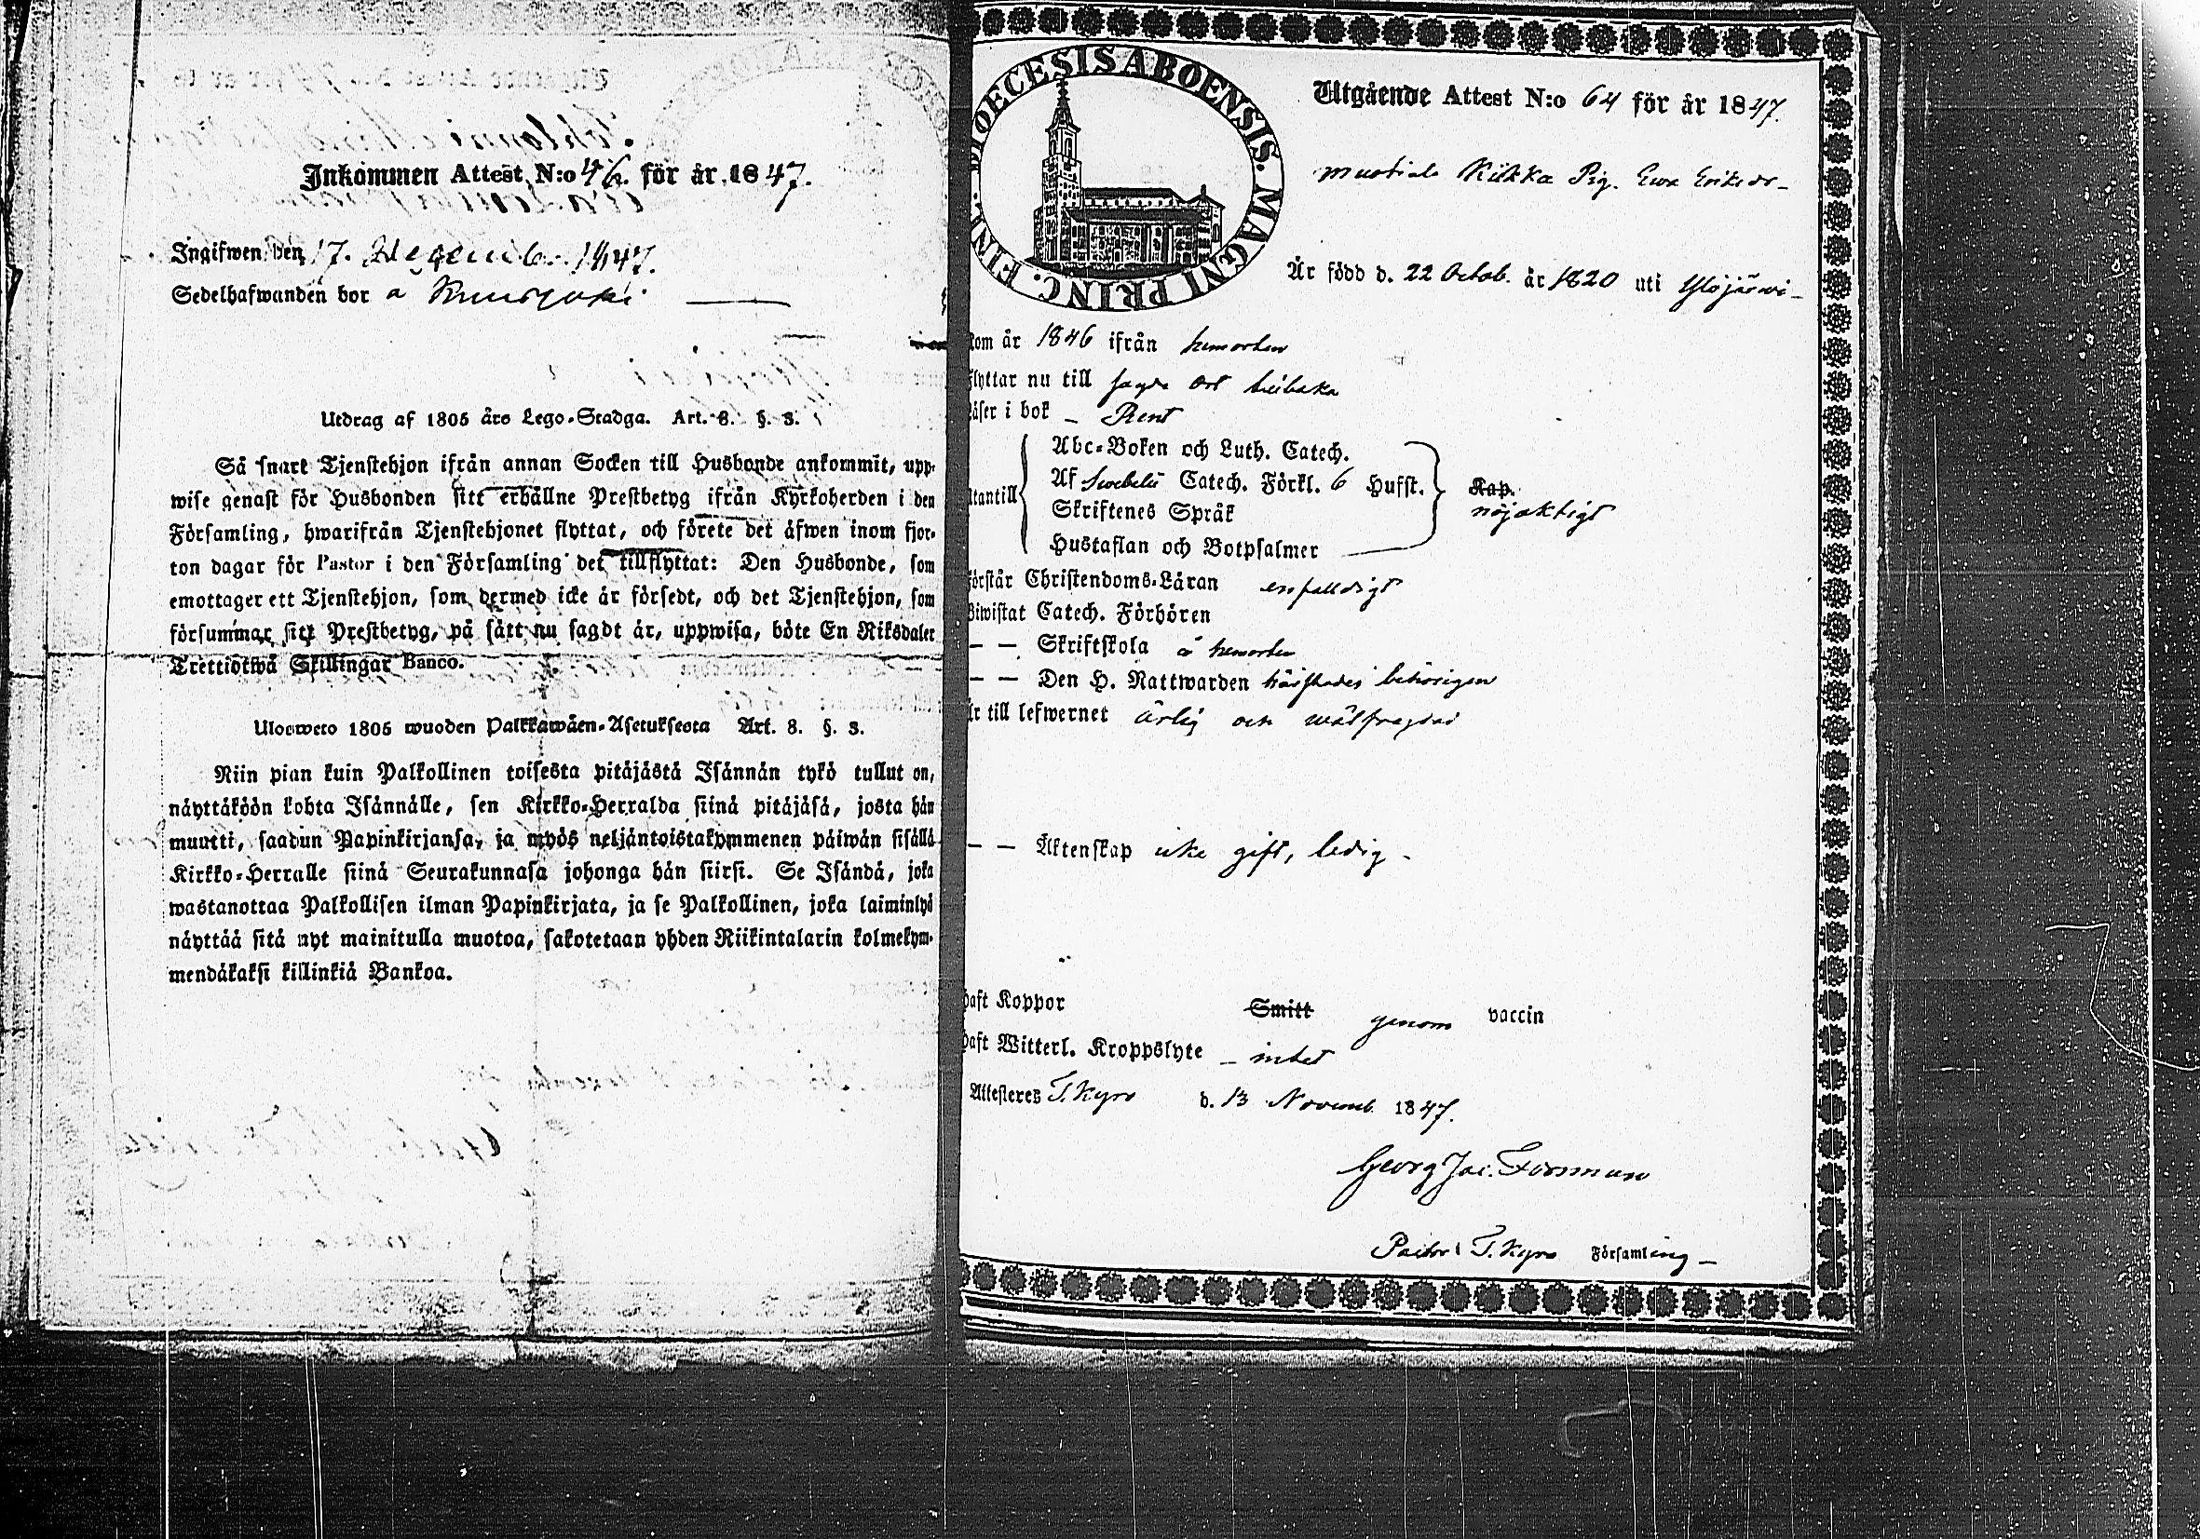 Inkommen Attest N:o 46. för år 1847.
Ingifwen den 17. Decemb. 1847.
Sedelhafwanden bor å
Utdrag af 1805 års Lego-Stadga. Art. 8. §. 3.
Så snart Tjenstehjon ifrån annan Socken till Husbonde ankommit, upp-
wise genast för Husbonden sitt erhållne Prestbetyg ifrån Kyrkoherden i den
Församling, hwarifrån Tjenstehjonet flyttat, och förete det äfwen inom fjor-
ton dagar för Pastor i den Församling det tillflyttat: Den Husbonde, som
emottager ett Tjenstehjon, som dermed icke är försedt, och det Tjenstehjon, som
försummar sitt Prestbetyg, på sätt nu sagdt är, uppwisa, böte En Riksdaler
Trettiotwå Skillingar Banco.
Ulosweto 1805 wuoden Palkkawäen-Asetuksesta Art. 8. §. 3.
Niin pian kuin Palkollinen toisesta pitäjästä Isännän tykö tullut on,
näyttäköön kohta Isännälle, sen Kirkko-Herralda siinä pitäjäsä, josta hän
muutti, saadun Papinkirjansa, ja myös neljäntoistakymmenen päiwän sisällä
Kirkko-Herralle siinä Seurakunnasa johonga hän siirsi. Se Isändä, joka
wastanottaa Palkollisen ilman Papinkirjata, ja se Palkollinen, joka laiminlyö
näyttää sitä nyt mainitulla muotoa, sakotetaan yhden Riikintalarin kolmekym-
mendäkaksi killinkiä Bankoa.
DIOECESIS ABOENSIS. MAGNI PRINC. FINL.
Utgående Attest N:o 64 för år 1847.
Kiikka Pig. Ewa Eriksdr
Är född d. 22 Octob. år 1820 uti Ylöjärwi
kom år 1846 ifrån hemorten
flyttar nu till sagde ort tillbaka
läser i bok – Rent
Abc-Boken och Luth. Catech.
Af Swebelii Catech. Förkl. 6 Hufst.
utantill Skriftenes Språk
Hustaflan och Botpsalmer
Kap.
nöjaktigt
förstår Christendoms-Läran enfaldigt
Biwistat Catech. Förhören
– – Skriftskola å hemorten
– – Den H. Nattwarden härstädes behörigen
är till lefwernet ärlig och wälfrägdad
– – Äktenskap icke gift, ledig.
haft Koppor Smitt genom vaccin
haft Witterl. Kroppslyte – intet
Attesteres T.Kyro d. 13 Novemb. 1847.
Georg Jac. Forsman
Pastor i T.Kyro Församling